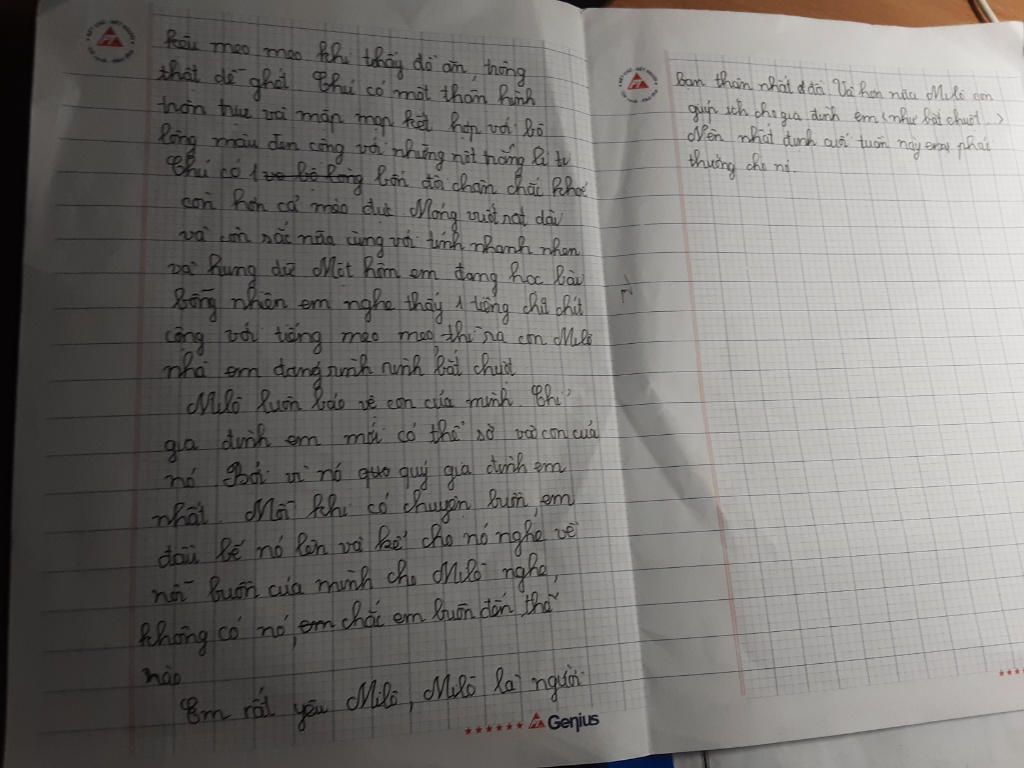 Kêu meo meo khi thấy đồ ăn, trông
thật dễ ghét Chú có một thân hình
tròn trục và mập mạp kết hợp với bộ
lông màu đen cộng với những nốt trắng li ti
Chú có 1 bốn đôi chân chắc khoẻ
còn hơn cả mèo đực Móng vuốt rất dài
và còn sắc nữa cùng với tính nhanh nhẹn
và hung dữ Một hôm em đang học bài
bỗng nhiên em nghe thấy 1 tiếng chít chít
cộng với tiếng meo meo, thì ra con Milô
nhà em đang rình rình bắt chuột
Milô luôn bảo vệ con của mình. Chỉ
gia đình em mới có thể sờ vào con của
nó Bởi vì nó quý gia đình em
nhất. Mỗi khi có chuyện buồn, em
đều bế nó lên và kể cho nó nghe về
nỗi buồn của mình cho Milô nghe,
không có nó, chắc em buồn đến thế
nào
Em rất yêu Milô, Milô là người
bạn thân nhất đời Và hơn nữa Milô còn
giúp ích cho gia đình em (như bắt chuột...)
Nên nhất định cuối tuần này em phải
thưởng cho nó.
Genius